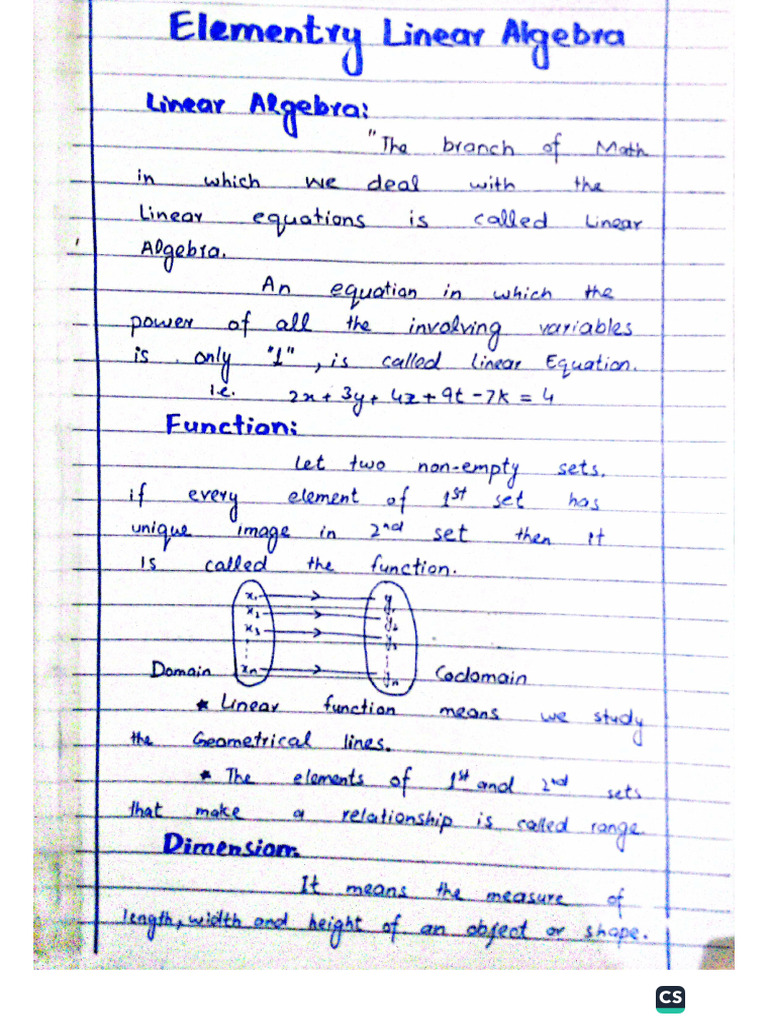 Elementry Linear Algebra
Linear Algebra:
"The branch of Math
in which we deal with the
Linear equations is called Linear
Algebra.
An equation in which the
power of all the involving variables
is only "1", is called linear Equation.
i.e. 2x + 3y + 4z + 9t - 7k = 4
Function:
Let two non-empty sets.
if every element of 1st set has
unique image in 2nd set then it
is called the function.
x1 y1
x2 y2
x3 y3
Domain xn yn Codomain
* Linear function means we study
the Geometrical lines.
* The elements of 1st and 2nd sets
that make a relationship is called range.
Dimension:
It means the measure of
length, width and height of an object or shape.
CS